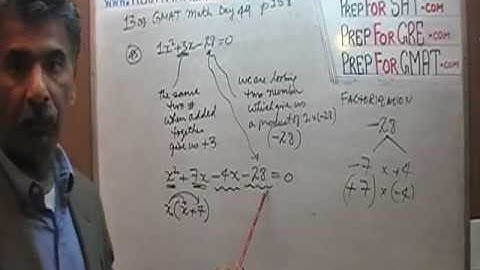 13 of GMAT Math Day 49 p 158
PREP FOR SAT.COM
PREP FOR GRE.COM
PREP FOR GMAT.COM
1x²+3x-28=0
the same
two #
when added
together
give us +3
we are looking
two number
which give us
a product of
(-28)
FACTORIZATION
-28
-7 x +4
(+7) x (-4)
x²+7x-4x-28=0
x(x+7)